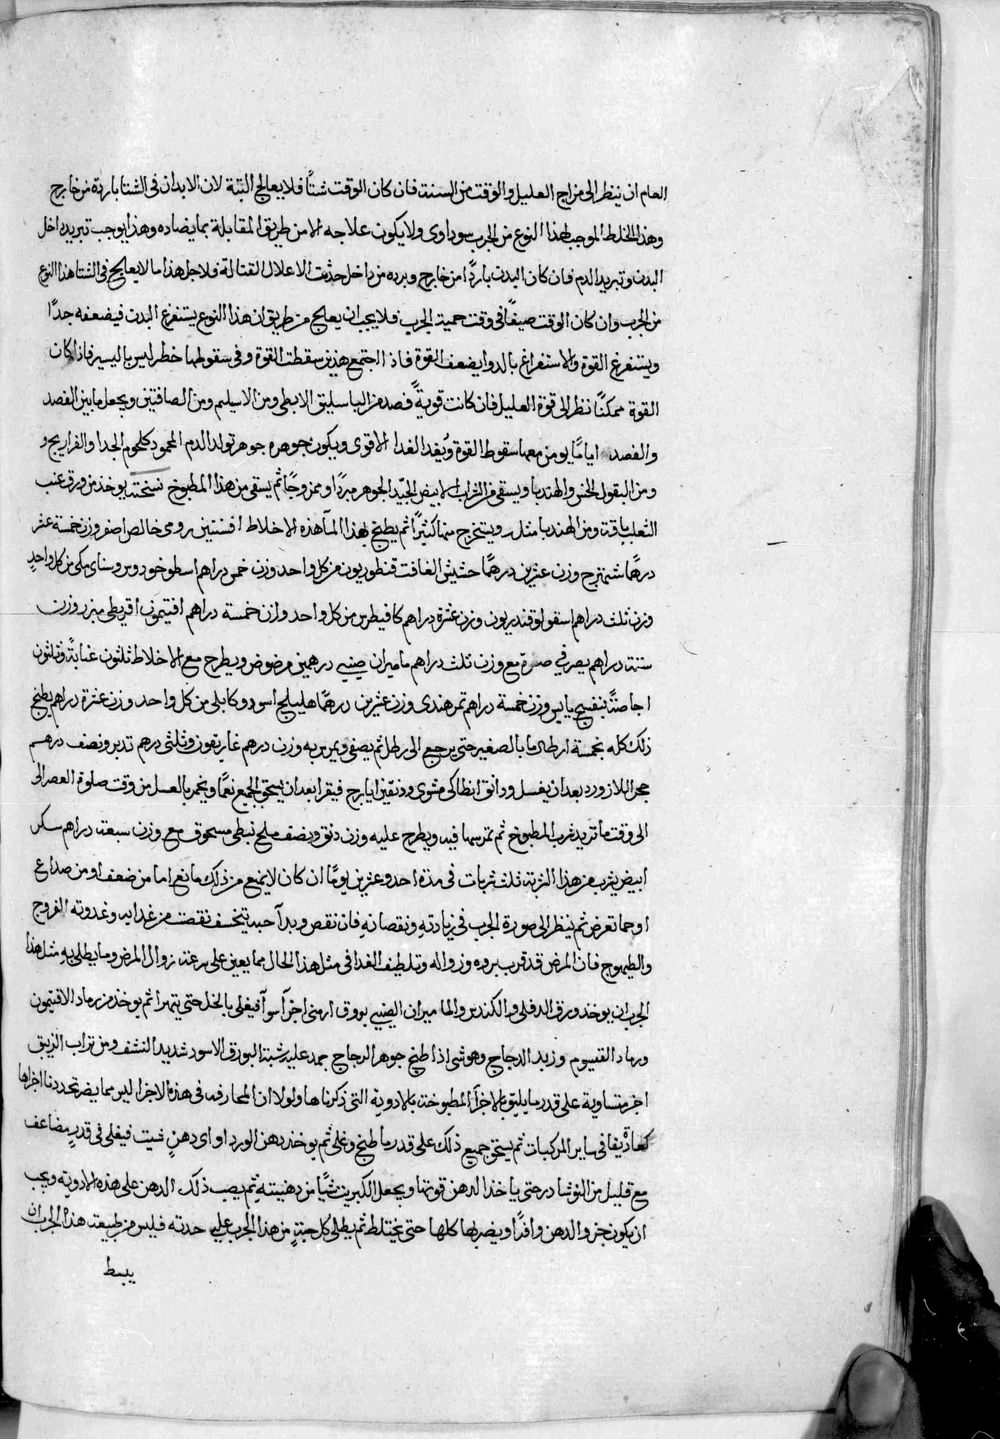 العام ان ينظر الى مزاج العليل والوقت من السنة فان كان الوقت شتاً فلا يعالج البتة لان الابدان فى الشتا باردة من خارج
وهذا الخلط الموجب لهذا النوع من الجرب سوداوى ولا يكون علاجه الا من طريق المقابلة بما يضاده وهذا يوجب تبريد داخل
البدن وتبريد الدم فان كان البدن بارداً من خارج وبرده من داخل حدثت الاعلال القتالة فلاجل هذا ما لا يعالج فى الشتا هذا النوع
من الجرب وان كان الوقت صيفاً فى وقت حمية الجرب فلا يجب ان يعالج من طريق ان هذا النوع يستفرغ البدن فيضعفه جداً
ويستفرغ القوة والاستفراغ بالدوا يضعف القوة فاذا اجتمع هذين سقطت القوة وفى سقوطها خطر ليس باليسير فاذا كان
القوة ممكناً نظر الى قوة العليل فان كانت قويةً فصد من الباسليق الابطى ومن الاسيلم ومن الصافنين ويجعل ما بين الفصد
والفصد اياماً يومن معها سقوط القوة ويغد الغدا الاقوى ويكون جوهره جوهر تولد الدم المحمود كلحوم الجدا والفراريج و
ومن البقول الخس والهندبا ويسقى من الشراب الابيض الجيد الجوهر مبرداً وممزوجاً ثم يسقى من هذا المطبوخ نسخته يوخذ من ورق عنب
الثعلب باقة ومن الهندبا مثله ويستخرج منها كثيراً ثم يطبخ بهذا المآ هذه الاخلاط افسنتين رومى خالص اصفر وزن خمسة عشر
درهماً شهترج وزن عشرين درهماً حشيش الغافت قنطوريون من كل واحد وزن خمس دراهم اسطوخودوس وسناى مكى من كل واحدٍ
وزن ثلث دراهم اسقولوقندريون وزن عشرة دراهم كافيطوس من كل واحد وزن خمسة دراهم افتيمون اقريطى مبزر وزن
ستة دراهم يصر فى صرة مع وزن ثلث دراهم ماميران صينى درهمين مرضوض ويطرح مع الاخلاط ثلثون عنابة وثلثون
اجاصةً بنفسج يابس وزن خمسة دراهم تمر هندى وزن عشرين درهماً هليلج اسود وكابلى من كل واحد وزن عشرة دراهم يطبخ
ذلك كله بخمسة ارطال ما بالصغير حتى يرجع الى رطل ثم يصفى ويمرس به وزن درهم غاريقون وثلثى درهم تدبر ونصف درهم
حجر اللازورد بعد ان يغسل ودانق انطاكى مشوى ودنقين ايارج فيقرا بعد ان يسحق الجميع نعماً ويخمر بالعسل من وقت صلوة العصر الى
الى وقت ما تريد شرب المطبوخ ثم تمرسها فيه ويطرح عليه وزن دنق ونصف ملح نبطى مسحوق مع وزن سبعة دراهم سكر
ابيض يشرب من هذا الشربة ثلث شربات فى مدة احد وعشرين يوماً ان كان لا يمنع من ذلك مانع اما من ضعف او من صداع
او حما تعرض ثم ينظر الى صورة الجرب فى زيادته ونقصانه فان نقص وبدآ حبه يتخسف نقصت من غدايه وغدوته الفروج
والطيهوج فان المرض قد قرب بروه وزواله وتلطيف الغدا فى مثل هذا الحال مما يعين على سرعة زوال المرض ومما يطلى به مثل هذا
الجرب ان يوخذ ورق الدفلى والكندس والماميران الصينى بورق ارمنى اجزآ سوآ فيغلى بالخل حتى يتهرا ثم يوخذ من رماد الافتيمون
ورماد القيسوم وزبد الزجاج وهو شى اذا طبخ جوهر الزجاج جمد عليه شبة البورق الاسود شديد النشف ومن تراب الزيبق
اجز متساوية على قدر ما يليق بالاجزآ المطبوخة بالادوية التى ذكرناها ولولا ان المجازفة فى هذه الاجزا ليس مما يضر تحددنا اجزاها
كعادتنا فى ساير المركبات ثم يسحق جميع ذلك على قدر ما طبخ وغلى ثم يوخذ دهن الورد او اى دهنٍ شيت فيغلى فى قدرٍ مضاعف
مع قليل من النوشادر حتى ياخذ الدهن قوتها ويجعل الكبريت شيًا من دهنيته ثم يصب ذلك الدهن على هذه الادوية ويجب
ان يكون جزو الدهن وافراً ويضربها كلها حتى يختلط ثم يطلى كل حبةٍ من هذا الجرب على حدته فليس من طبيعة هذا الجرب ان
يبسط